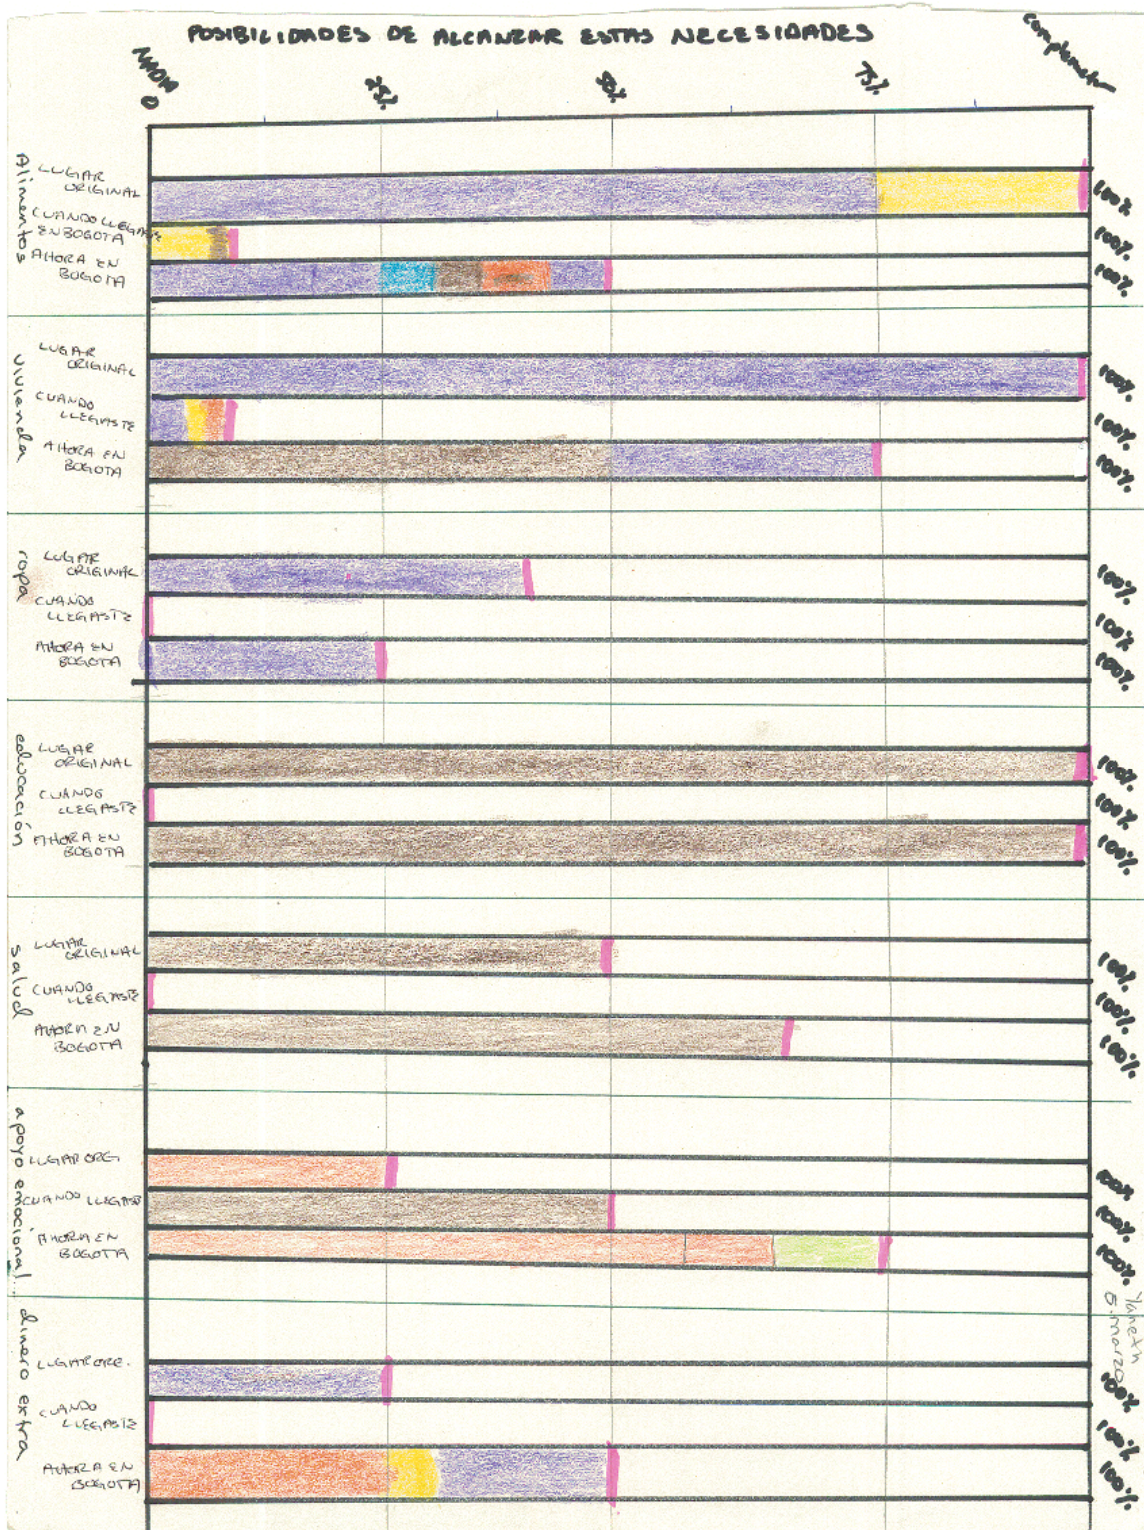 POSIBILIDADES DE ALCANZAR ESTAS NECESIDADES
NADA
0
25%
50%
75%
Alimentos
LUGAR
ORIGINAL
100%
CUANDO LLEGASTE
EN BOGOTA
100%
AHORA EN
BOGOTA
100%
vivienda
LUGAR
ORIGINAL
100%
CUANDO
LLEGASTE
100%
AHORA EN
BOGOTA
100%
ropa
LUGAR
ORIGINAL
100%
CUANDO
LLEGASTE
100%
AHORA EN
BOGOTA
100%
educación
LUGAR
ORIGINAL
100%
CUANDO
LLEGASTE
100%
AHORA EN
BOGOTA
100%
salud
LUGAR
ORIGINAL
100%
CUANDO
LLEGASTE
100%
AHORA EN
BOGOTA
100%
apoyo emocional...
LUGAR ORG.
100%
CUANDO LLEGAST
100%
AHORA EN
BOGOTA
100%
Yaneth
5. marzo
dinero extra
LUGAR ORG.
100%
CUANDO
LLEGASTE
100%
AHORA EN
BOGOTA
100%